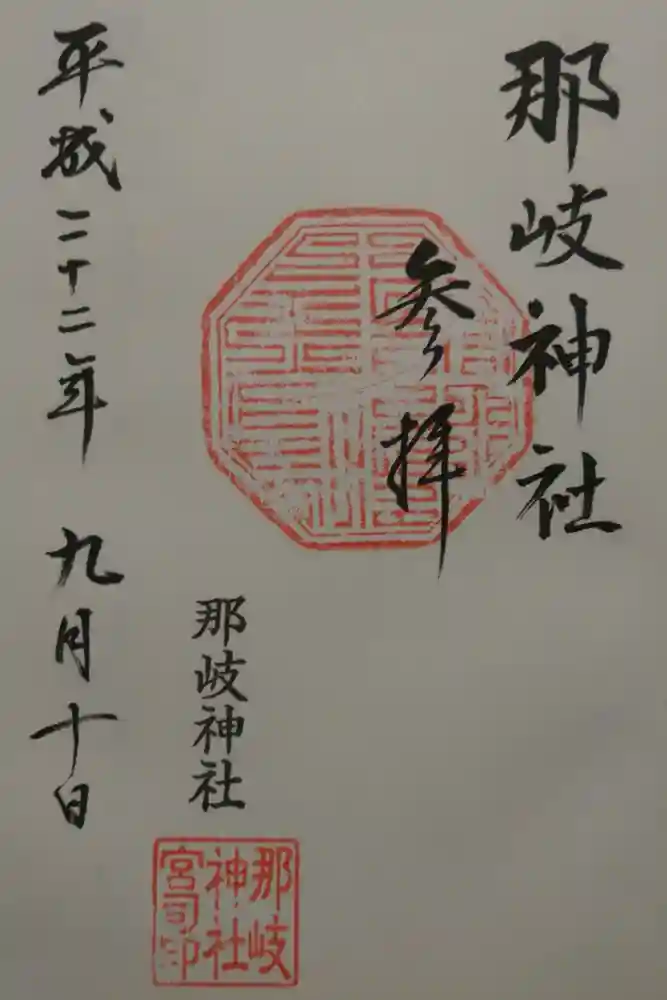 那岐神社
参拝
那岐神社
那岐
神社
宮司印
平成二十二年 九月十日